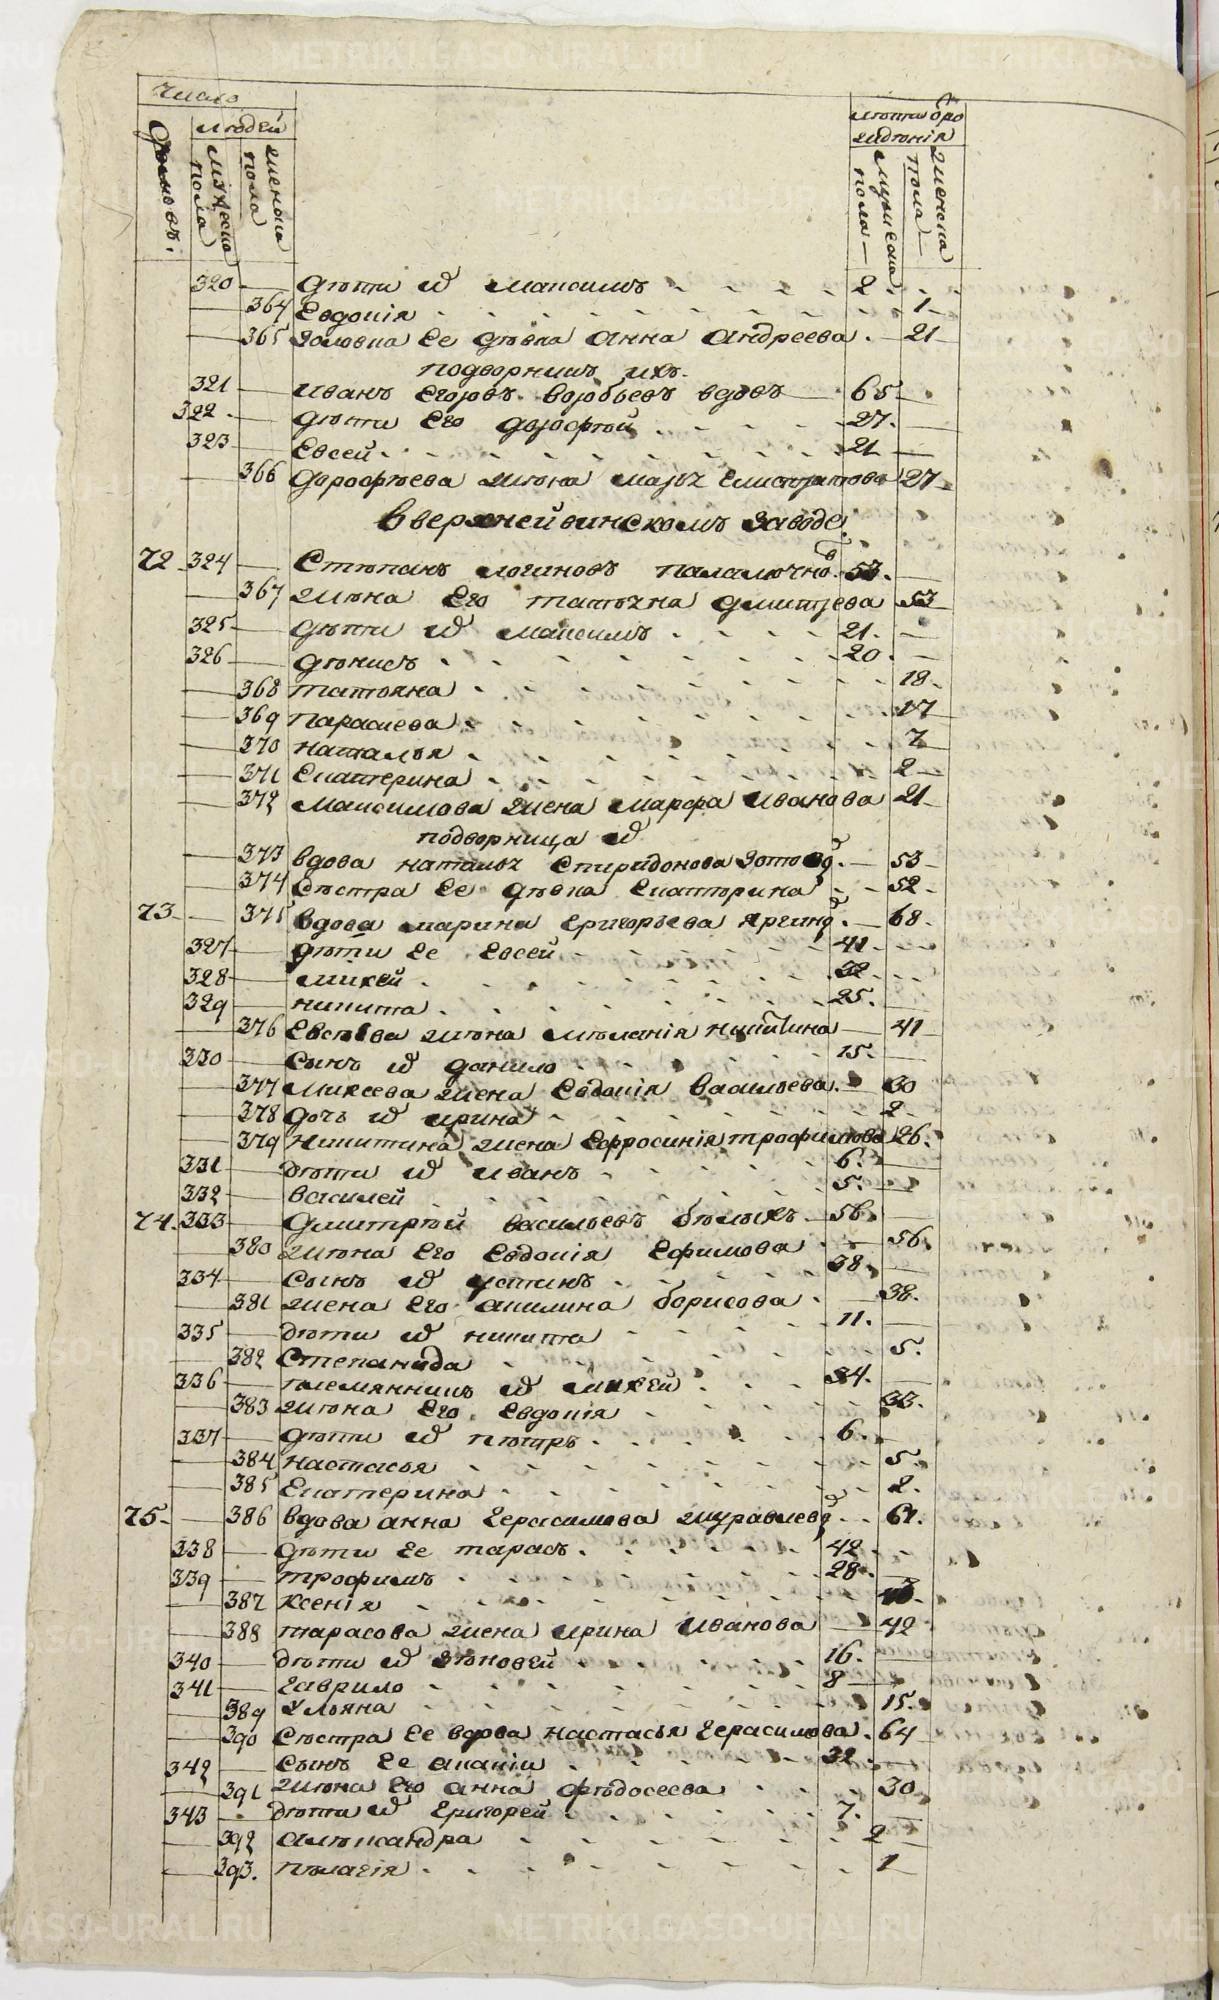 METRIKI.GASO-URAL.RU
Число
людей
домовъ
мужеска пола
женска пола
лѣты от рождения
мужеска пола
женска пола
320 — дѣти их Максимъ 2
364 Евдокія 1
365 золовка Ее дѣвка Анна Андреева 21
подворники ихъ
321 — Иванъ Егоровъ Воробьевъ вдовъ 65
322 — дѣти Его Дорофѣй 27
323 — Евсей 21
366 Дорофѣева жѣна Марья Елистратова 27
В верхнейвинскомъ заводе
72 324 — Стѣпанъ Логиновъ 53
367 жѣна Его татьяна дмитрева 53
325 — дѣти их Максимъ 21
326 — Дѣнисъ 20
368 татьяна 18
369 парасковья 17
370 наталья 7
371 Екатерина 2
372 Максимова жена Марфа Иванова 21
подворница их
373 вдова наталья Спиридонова 53
374 Сѣстра Ее дѣвка Екатѣрина 52
73 — 375 вдова марина Григорьева 68
327 — дѣти Ее Евсей 41
328 — михей 32
329 — никита 25
376 Евсѣева жѣна Мѣланія Никитина 41
330 — сынъ их данило 15
377 Михеева жена Евдокія Васильева 30
378 дочь их ирина 2
379 Никитина жена Ефросинія трофимова 26
331 — дѣти их Иванъ 6
332 — василей 5
74 333 — Дмитрѣй васильевъ бѣлыхъ 56
380 жѣна Его Евдокія Ефимова 56
334 — сынъ их устинъ 38
381 жена Его акилина борисова 38
335 — дѣти их никита 11
382 Степанида 5
336 — племянникъ их михей 34
383 жѣна Его Евдокія 33
337 — дѣти их пѣтръ 6
384 настасья 5
385 Екатерина 2
75 — 386 вдова анна Герасимова 61
338 — дѣти Ее тарасъ 42
339 трофимъ 28
387 Ксенія
388 тарасова жена ирина Иванова 42
340 — дѣти их зѣновей 16
341 — гаврило 8
389 Ульяна 15
390 Сѣстра Ее вдова настасья Герасимова 64
342 — сынъ Ее ананій 32
391 жѣна Его анна фѣдосеева 30
343 — дѣти их Григорей 7
392 алѣксандра 2
393 пѣлагія 1